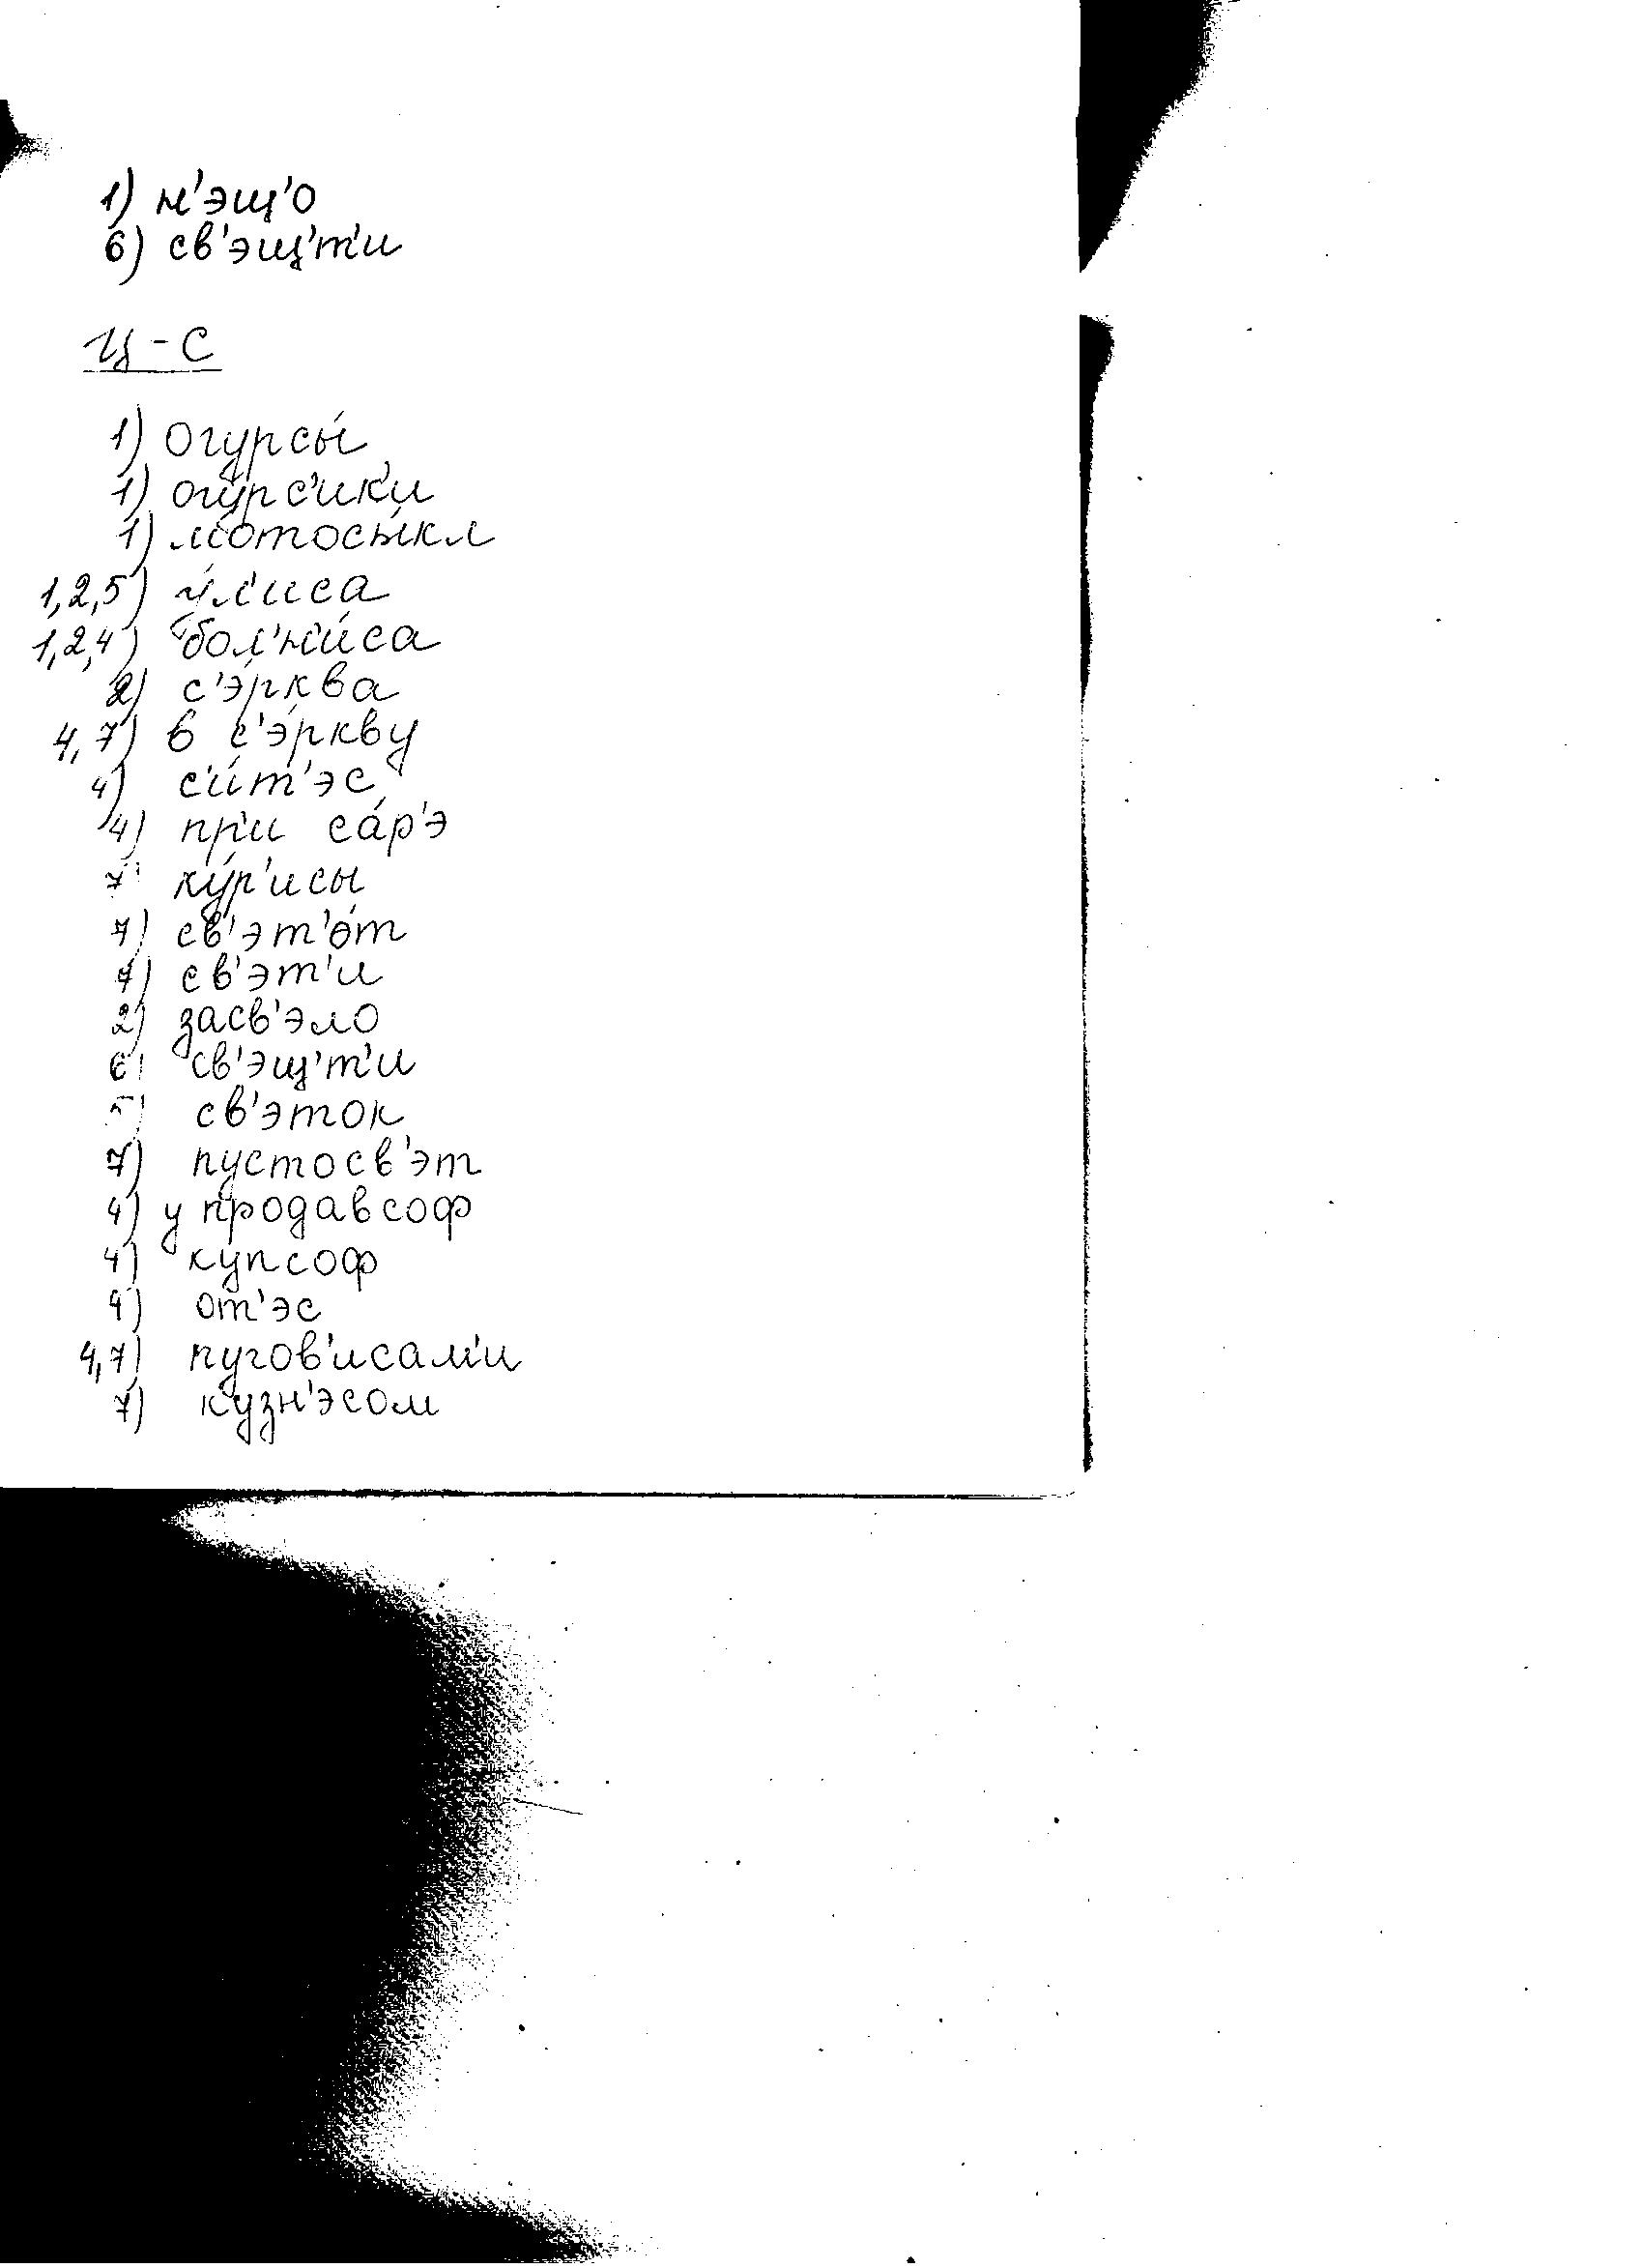 1) н'эщ'о
6) св'эщ'т'и
ц - с
1) огурсы́
1) огу́рс'ик'и
1) мотосы́кл
1,2,5) у́л'иса
1,2,4) бол'н'и́са
2) с'э́рква
4,7) в с'э́ркву
4) с'и́т'эс
4) пр'и са́р'э
7) ку́р'исы
7) св'эт'о́т
7) св'эт'и
2) засв'эло
6) св'эщ'т'и
5) св'эток
7) пустосв'эт
4) у продавсоф
4) купсоф
4) от'эс
4,7) пугов'исам'и
7) кузн'эсом